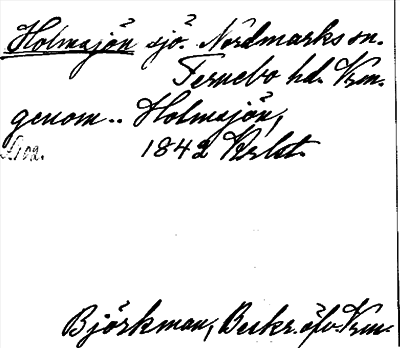 Holmsjön sjö. Nordmarks sn.
Fernebo hd. Vrm.
genom.. Holmsjön,
1842 Krlst.
Björkman, Beskr. öfv. Vrm.